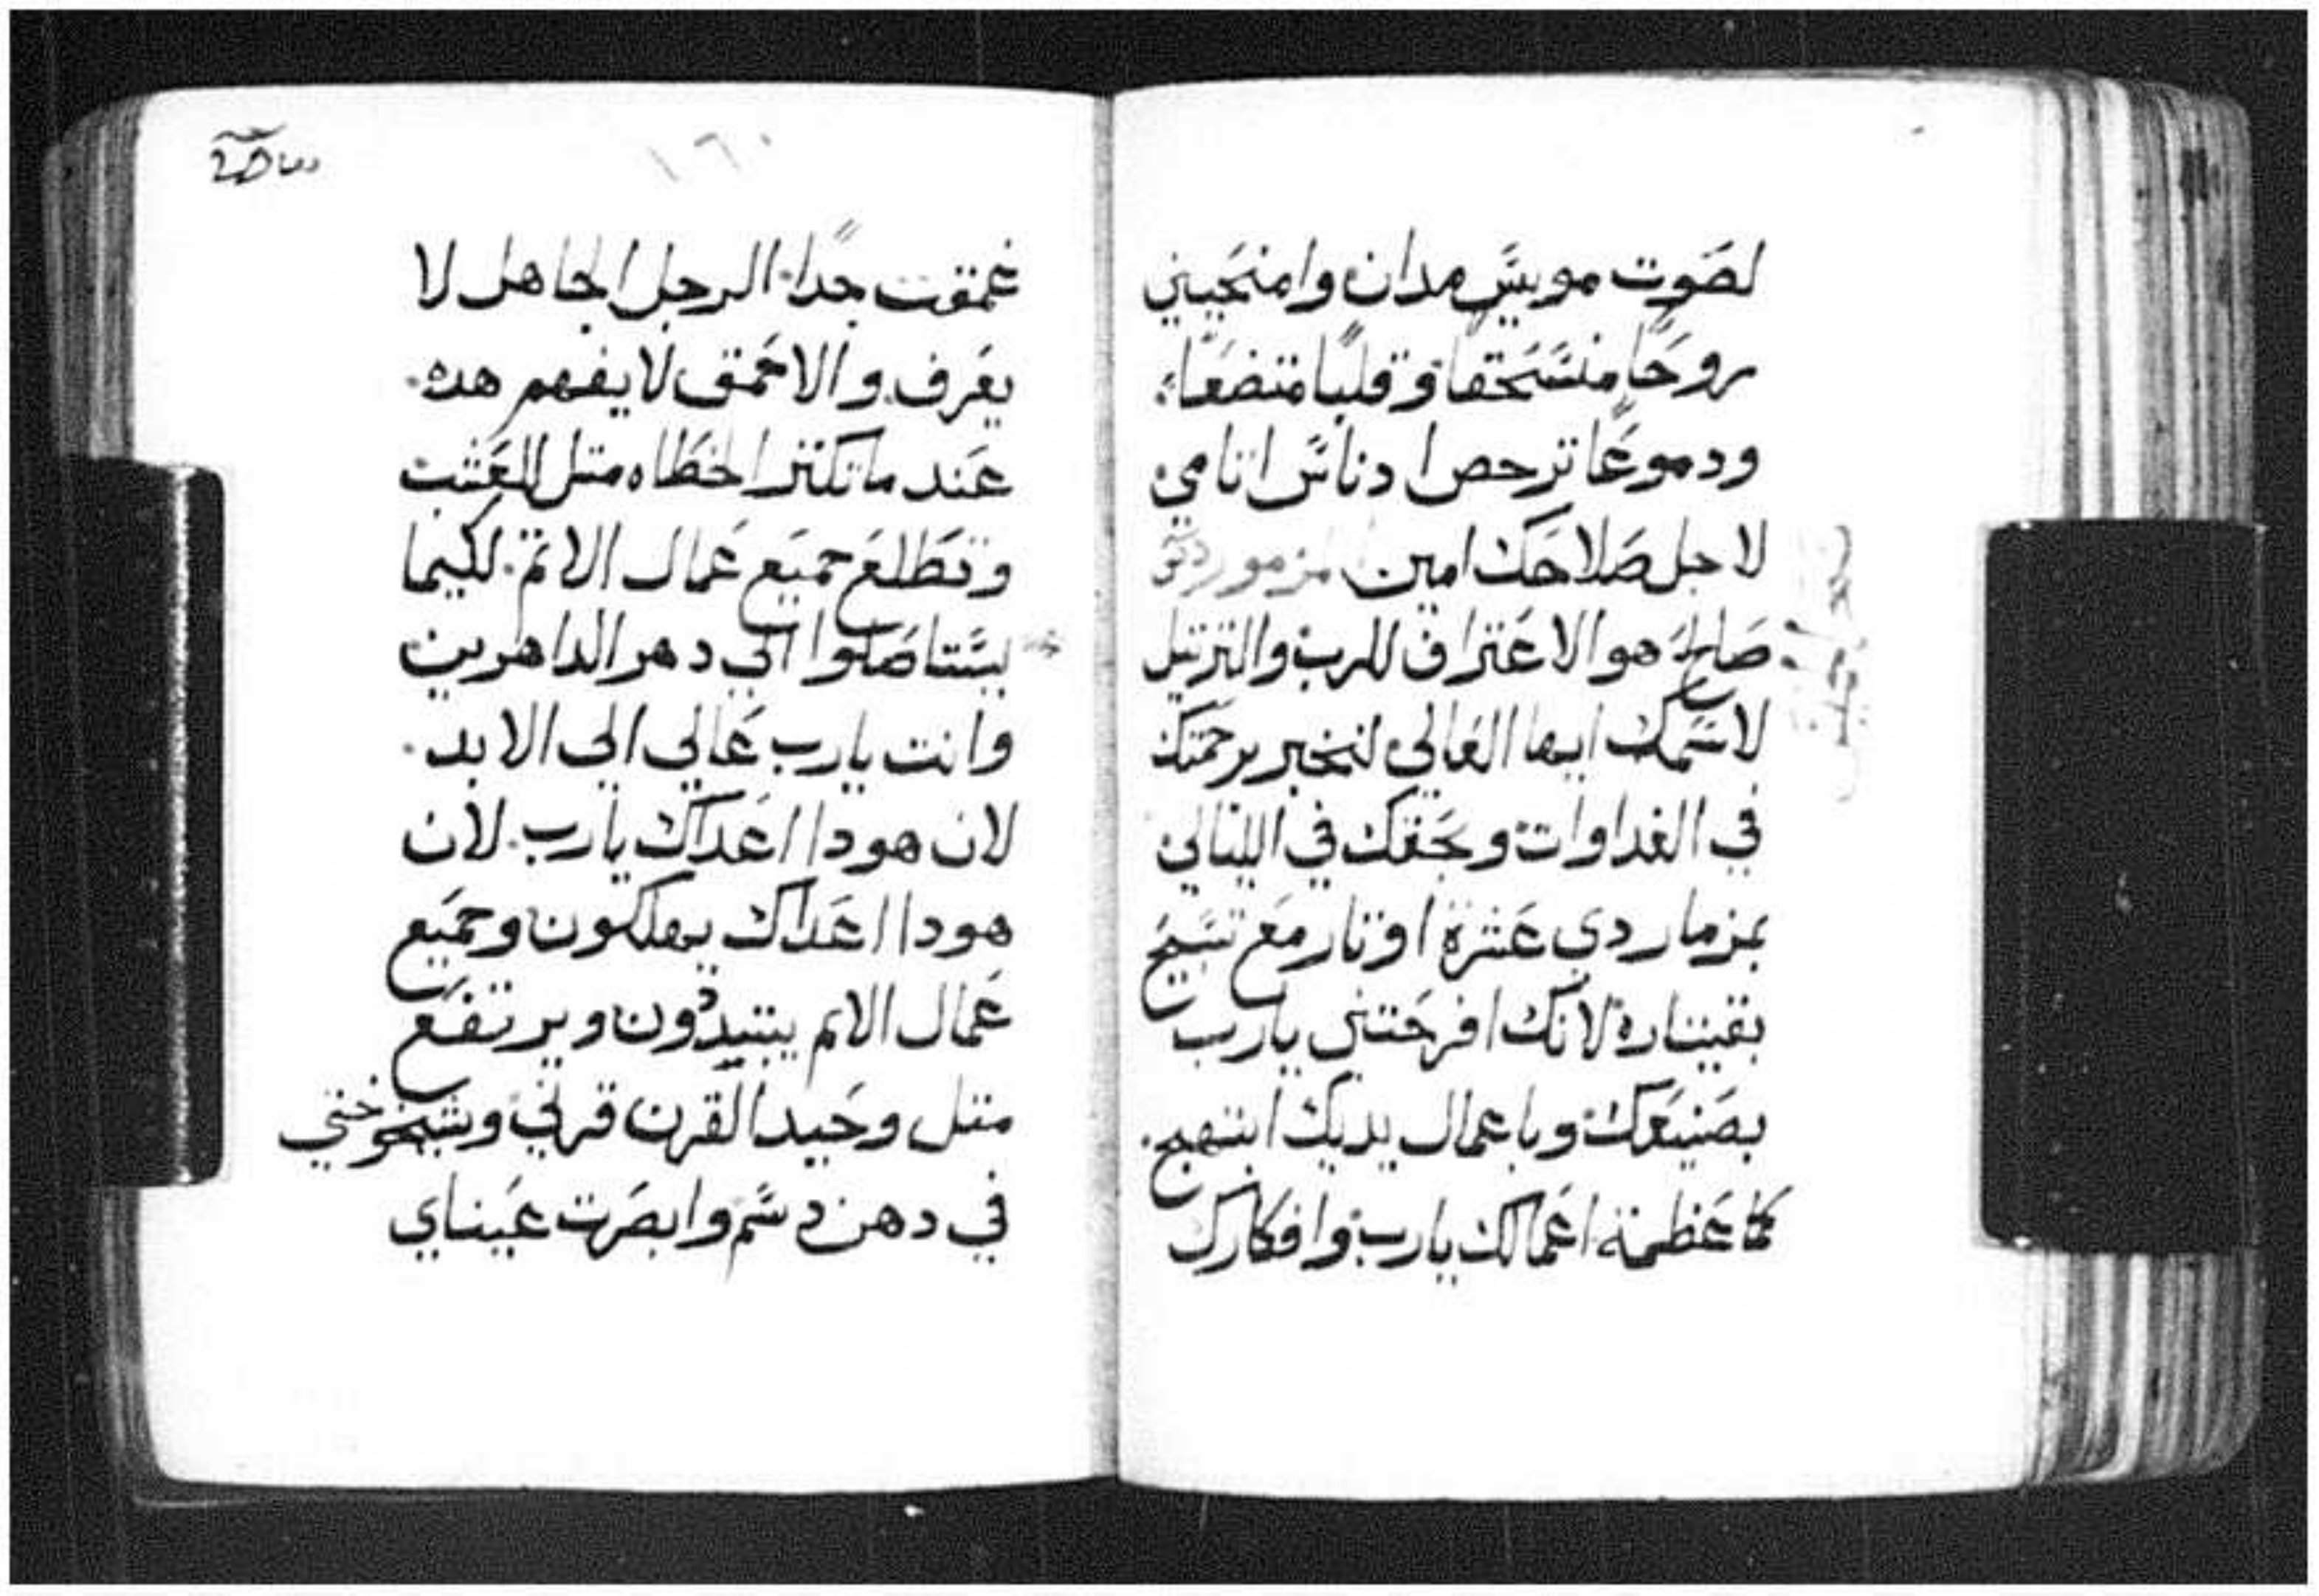 لصَوت موبسَّ مدان وامنحَيني
روحًا منسَحقًا وقلبًا متضعًا
ودموعًا ترحص ادناسَ اتامي
لاجل صَلاحَك امين مزمور
صَالح هو الاعتراف للرب والترتيل
لاسَمك ايها العَالي لنخبر برحمَتك
في الغداوات وبحَقك في الليالي
بمزمار دي عَشرة اوتار مع تسَبيح
بقيتاره لانك افرحَتني يارب
بصَنيعَك وباعمال يديك ابتهج.
كما عَظيمة اعَمالك يارب وافكارك
١٦٠
عمقت جدًا. الرجل الجاهل لا
يعَرف. والاحمَق لا يفهم هده.
عَند ما تكتر الخطَاه متل العَشب
وتطَلعَ جميَع عَمال الاتم. لكيما
يسَتاصَلوا الي دهر الداهرين
وانت يارب عَالي الي الابد.
لان هودا اعَداك يارب. لان
هودا اعَداك يهلكون وجميَع
عَمال الاتم يبتبددون ويرتفعَ
متل وحَيد القرن قرني وشيخوختي
في دهن دسَم وابصَرت عَيناي